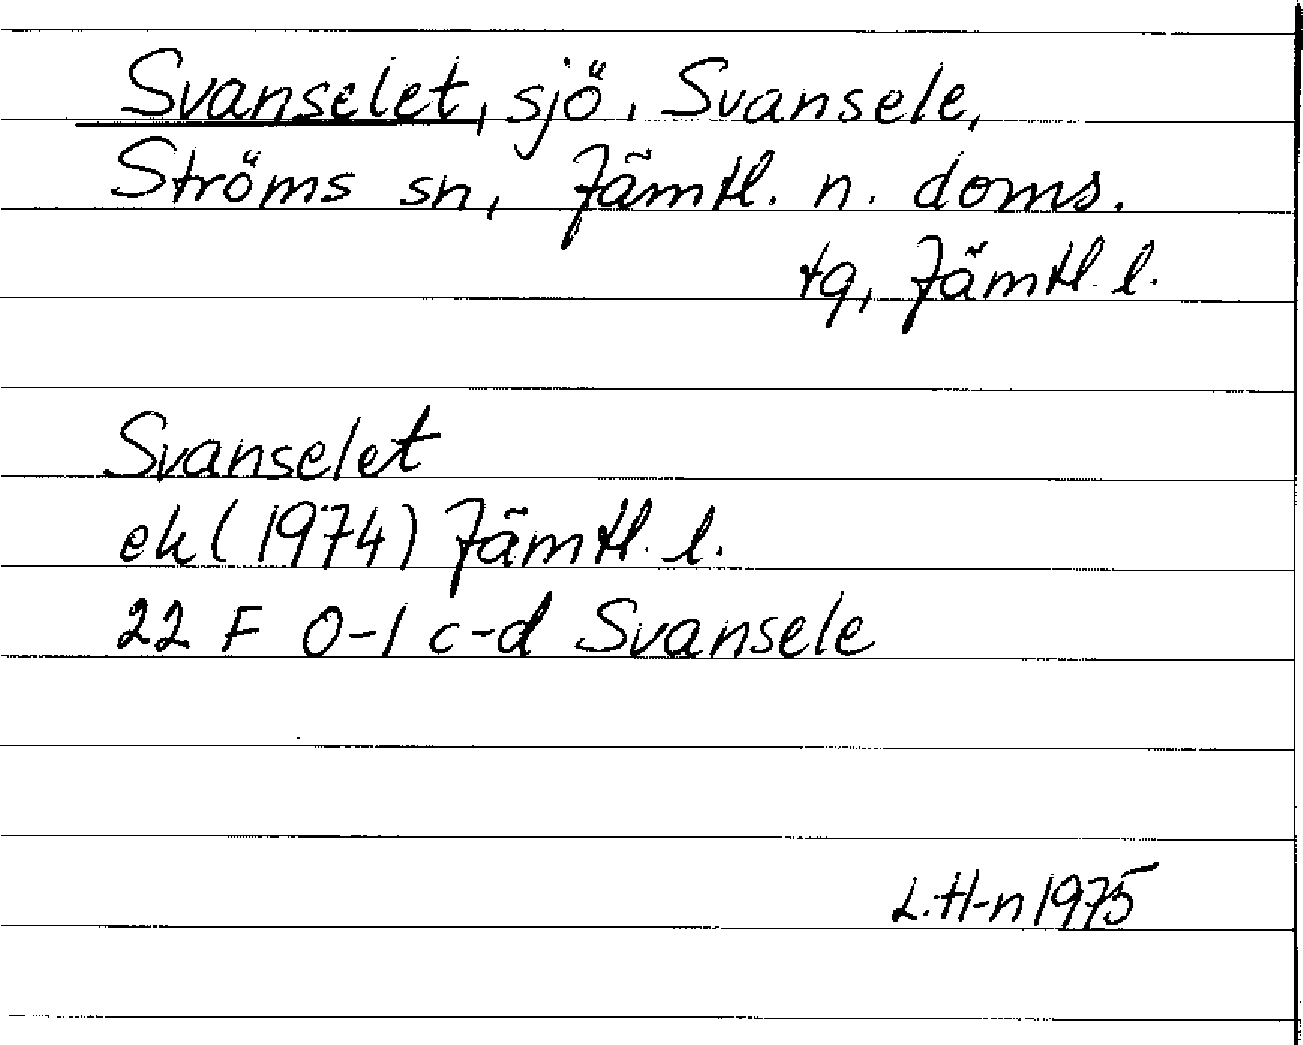 Svanselet, sjö, Svansele,
Ströms sn, Jämtl. n. doms.
tg, Jämtl. l.
Svanselet
ek (1974) Jämtl. l.
22 F 0-1 c-d Svansele
L. H-n 1975